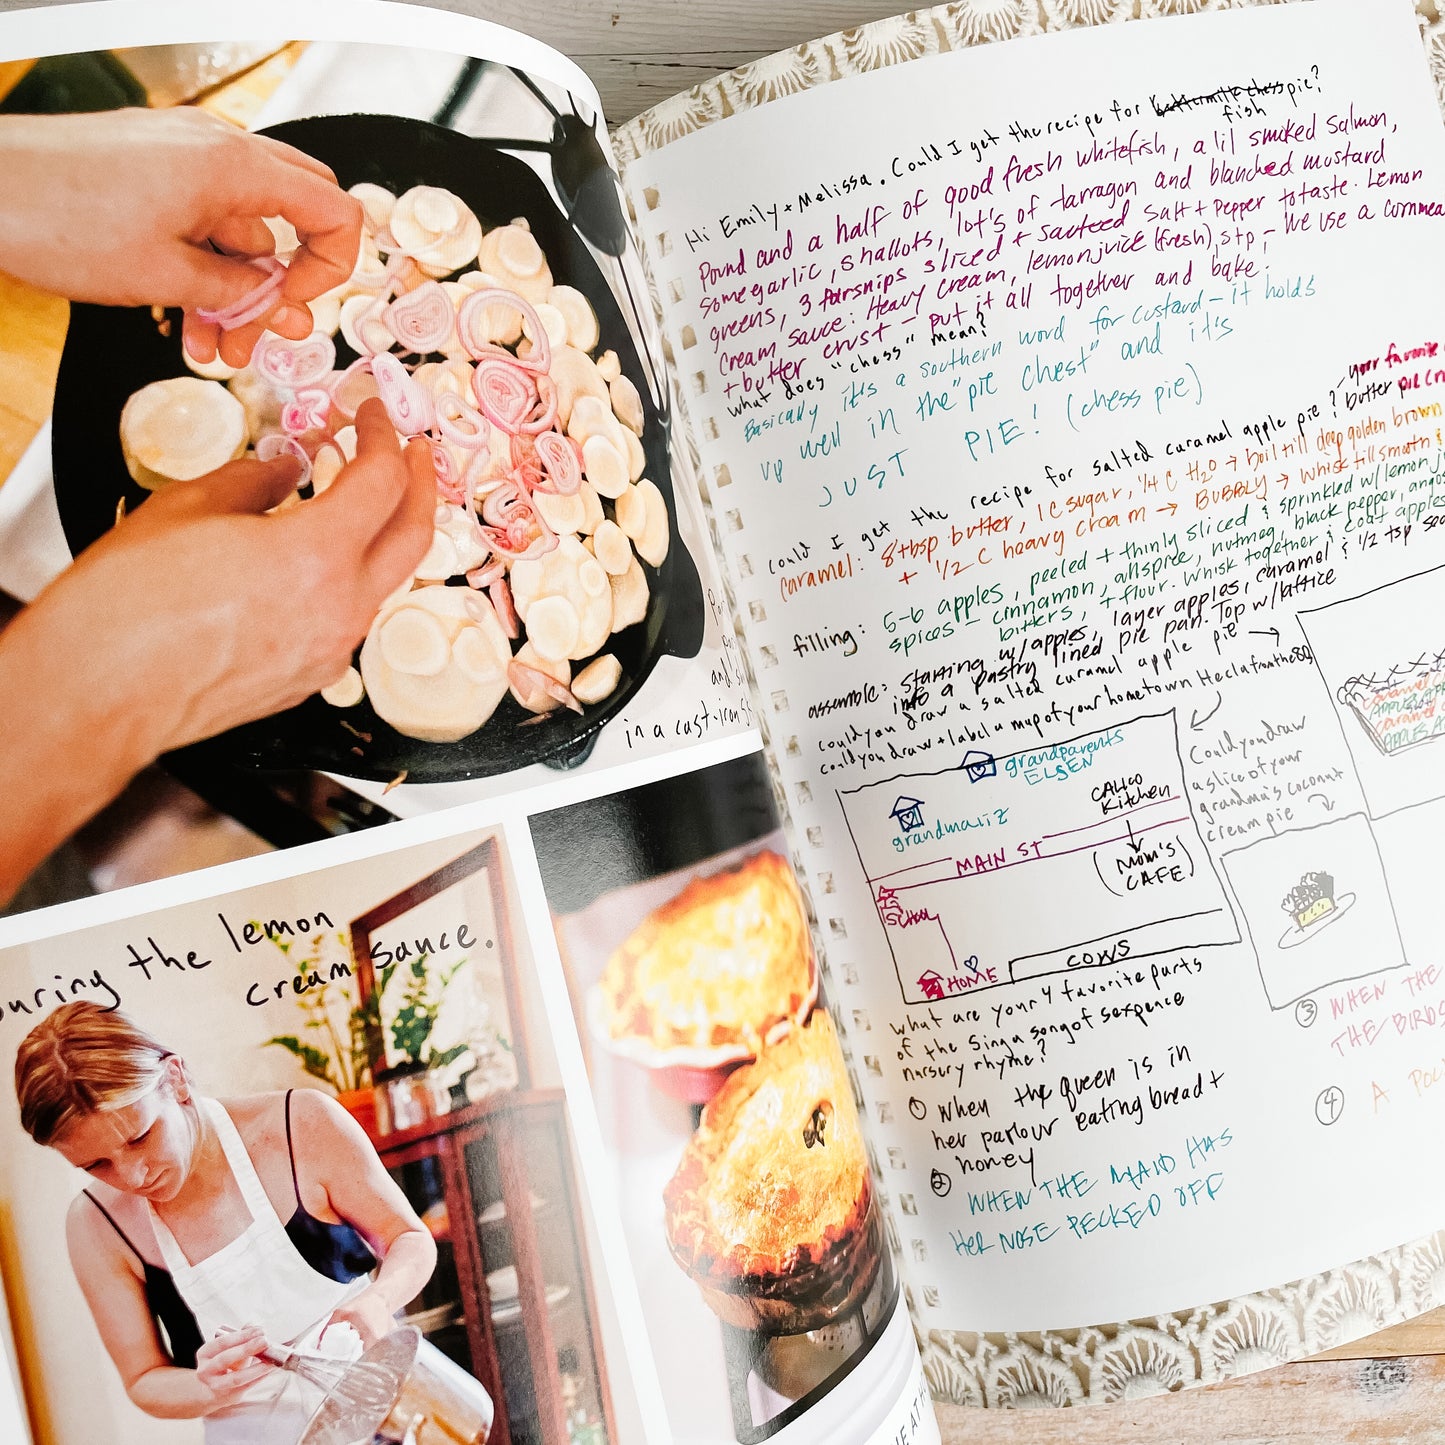 in a cast-iron
the lemon
cream sauce.
Hi Emily + Melissa. Could I get the recipe for buttermilk chess pie?
fish
Pound and a half of good fresh whitefish, a lil smoked salmon,
some garlic, shallots, lot's of tarragon and blanched mustard
greens, 3 parsnips sliced + sauteed salt + pepper to taste. Lemon
cream sauce: Heavy cream, lemon juice (fresh), s+p - We use a
+ butter crust - put it all together and bake.
What does "chess" mean?
Basically it's a southern word for custard - it holds
up well in the "pie chest" and it's
JUST PIE! (chess pie)
Could I get the recipe for salted caramel apple pie?
- your favorite
butter pie
caramel: 8 tbsp butter, 1 C sugar, 1/4 C H2O → boil till deep golden brown
+ 1/2 C heavy cream → BUBBLY → whisk till smooth
filling: 5-6 apples, peeled + thinly sliced & sprinkled w/ lemon
spices - cinnamon, allspice, nutmeg, black pepper,
bitters, + flour. Whisk together & coat apples
assemble: starting w/ apples, layer apples, caramel & 1/2 tsp
into a pastry lined pie pan. Top w/ lattice
Could you draw a salted caramel apple pie →
Could you draw + label a map of your hometown Hecla from the 80s
grandparents
ELSEN
grandma liz
CALICO
Kitchen
MAIN ST
(Mom's
CAFE)
SCHOOL
HOME
COWS
Could you draw
a slice of your
grandma's coconut
cream pie
What are your 4 favorite parts
of the Sing a song of sexpence
nursery rhyme?
① When the queen is in
her parlour eating bread +
honey
② WHEN THE MAID HAS
HER NOSE PECKED OFF
③ WHEN THE
THE BIRDS
④ A